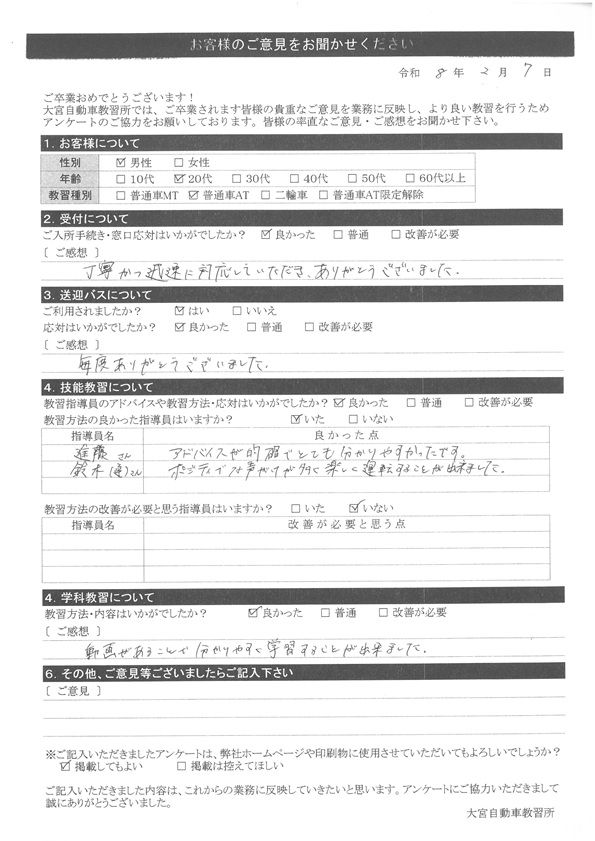 お客様のご意見をお聞かせください
令和 8 年 2 月 7 日
ご卒業おめでとうございます！
大宮自動車教習所では、ご卒業されます皆様の貴重なご意見を業務に反映し、より良い教習を行うため
アンケートのご協力をお願いしております。皆様の率直なご意見・ご感想をお聞かせ下さい。
1. お客様について
性別 ☑ 男性 □ 女性
年齢 □ 10代 ☑ 20代 □ 30代 □ 40代 □ 50代 □ 60代以上
教習種別 □ 普通車MT ☑ 普通車AT □ 二輪車 □ 普通車AT限定解除
2. 受付について
ご入所手続き・窓口応対はいかがでしたか？ ☑ 良かった □ 普通 □ 改善が必要
［ ご感想 ］
丁寧かつ迅速に対応していただき、ありがとうございました。
3. 送迎バスについて
ご利用されましたか？ ☑ はい □ いいえ
応対はいかがでしたか？ ☑ 良かった □ 普通 □ 改善が必要
［ ご感想 ］
毎度ありがとうございました。
4. 技能教習について
教習指導員のアドバイスや教習方法・応対はいかがでしたか？ ☑ 良かった □ 普通 □ 改善が必要
教習方法の良かった指導員はいますか？ ☑ いた □ いない
指導員名 良かった点
進藤 さん アドバイスが的確でとても分かりやすかったです。
鈴木(達)さん ポジティブな声がけが多く楽しく運転することが出来ました。
教習方法の改善が必要と思う指導員はいますか？ □ いた ☑ いない
指導員名 改善が必要と思う点
4. 学科教習について
教習方法・内容はいかがでしたか？ ☑ 良かった □ 普通 □ 改善が必要
［ ご感想 ］
動画があることで分かりやすく学習することが出来ました。
6. その他、ご意見等ございましたらご記入下さい
［ ご意見 ］
※ご記入いただきましたアンケートは、弊社ホームページや印刷物に使用させていただいてもよろしいでしょうか？
☑ 掲載してもよい □ 掲載は控えてほしい
ご記入いただきました内容は、これからの業務に反映していきたいと思います。アンケートにご協力いただきまして
誠にありがとうございました。
大宮自動車教習所